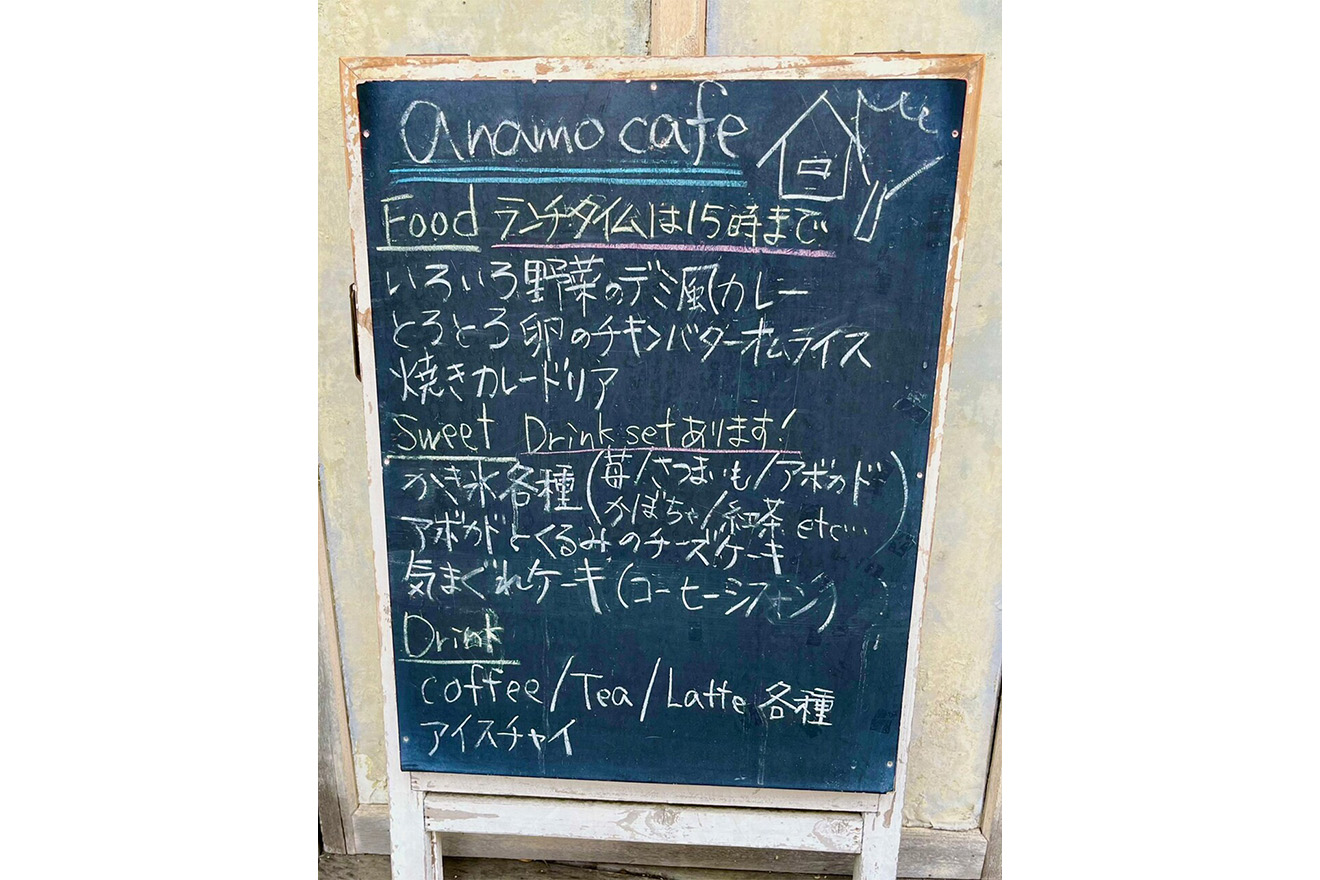 anamo cafe
Food ランチタイムは15時まで
いろいろ野菜のデミ風カレー
とろとろ卵のチキンバターオムライス
焼きカレードリア
Sweet Drink setあります!
かき氷各種(苺/さつまいも/アボカド
かぼちゃ/紅茶 etc…)
アボカドとくるみのチーズケーキ
気まぐれケーキ(コーヒーシフォン)
Drink
coffee/Tea/Latte 各種
アイスチャイ